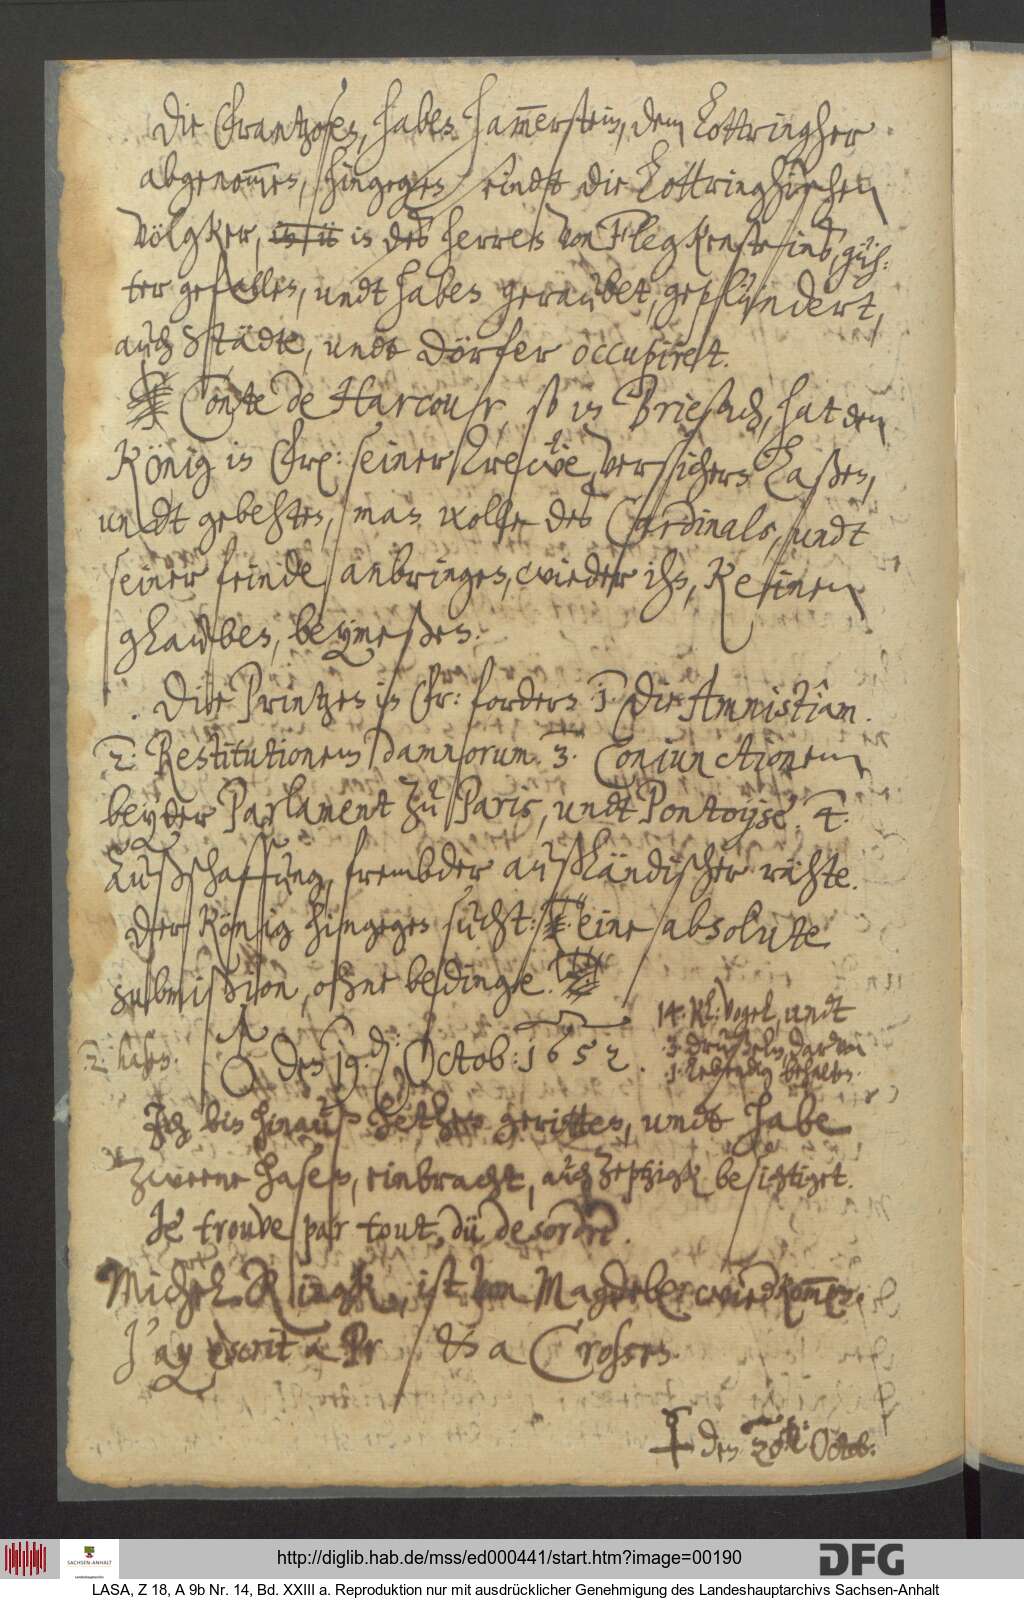 Die Frantzosen, haben Hamerstein, dem Lottringher
abgenommen, hingegen sindt die Lottringhischen
Völgker, in des herren von Flegkensteins, güh:
ter gefallen, undt haben geraubet, geplündert,
auch Städte, undt Dörfer occupiret.
Conte de Harcourt, so in Briesach, hat den
König in Frx: seiner Trewe, versichern Laßen,
undt gebehten, man wolle des Cardinals, undt
seiner feinde anbringen, wieder ihn, Keinen
glauben, beymeßen.
Die Printzen in Fr: fordern 1. Die Amnistiam.
2. Restitutionem damnorum. 3. Coniunctionem
beyder Parlament zu Paris, undt Pontoyse. 4.
Außschaffung, frembder außländischer rähte.
Der König hingegen sucht: eine absolute
submission, ohne bedinge.
2 hasen.
den 19. Octob: 1652.
14. Kl: Vogel, undt
3 drußeln, darvon
1. lebendig behalten.
Ich bin hinauß hetzen geritten, undt habe
zweene hasen, einbracht, auch Zeptzigk besichtiget.
Je trouve par tout, dü desordre.
Michel Ringk, ist von Magdeburg wiederkommen.
J'ay escrit a Pr & a Crossen.
den 20. Octob:
http://diglib.hab.de/mss/ed000441/start.htm?image=00190
SACHSEN-ANHALT
DFG
LASA, Z 18, A 9b Nr. 14, Bd. XXIII a. Reproduktion nur mit ausdrücklicher Genehmigung des Landeshauptarchivs Sachsen-Anhalt